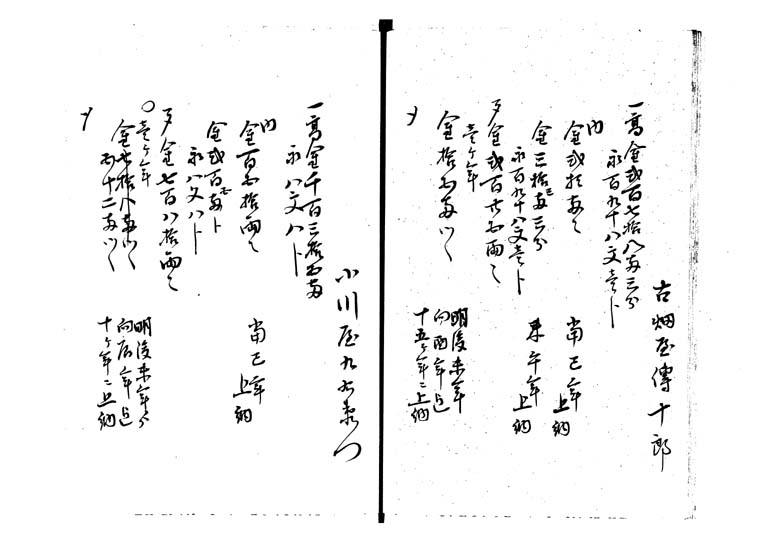 古畑屋傳十郎
一高金弐百七拾八両三分
永百九十八文壱卜
内
金弐拾両也 当巳年上納
金三拾三両三分
永百九十八文壱卜 来午年上納
〆金弐百廿五両也
壱ケ年
金拾五両ツヽ 明後未年
向酉年迄
十五ケ年ニ上納
〆
小川屋九左衛門
一高金千百三拾五両
永八文八卜
内
金百五拾両也 当巳年上納
金弐百
永八文八卜
〆金七百八拾両也
壱ケ年
金七拾八両ツヽ 明後未年ゟ
向辰年迄
十ケ年ニ上納
〆